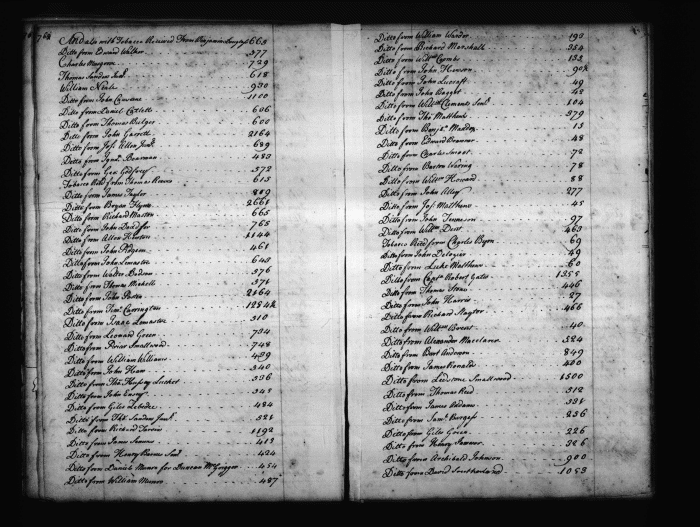 1768
with Tobacco Received From Benjamin 665
Ditto from Edward Walker 577
Charles Musgrove 729
Thomas Sanders Junr 618
William Neale 930
Ditto from John 1100
Ditto from Daniel Catlett 606
Ditto from Thomas Bulger 600
Ditto from John Garrett 2164
Ditto from Jos. Allen Junr 689
Ditto from Ignas. Boarman 483
Ditto from Geo. Godfrey 572
Tobacco Recd from Thomas Reeves 615
Ditto from James Taylor 809
Ditto from Bryan 2661
Ditto from Richard Maston 665
Ditto from John 765
Ditto from Allen 1144
Ditto from John 461
Ditto from John Lemaster 643
Ditto from Walter 576
Ditto from Thomas Nicholls 571
Ditto from John 2164
Ditto from Timy. Carrington
Ditto from Isaac Lemaster 310
Ditto from Leonard Green 734
Ditto from Prior Smallwood 748
Ditto from William Williams 439
Ditto from John Ham 340
Ditto from Thos. Luckett 536
Ditto from John 348
Ditto from Giles 484
Ditto from Thos. Sanders Junr 521
Ditto from Richard 1192
Ditto from James 413
Ditto from Henry Barnes Senr 424
Ditto from Daniel Munro for Duncan McGrigger 454
Ditto from William Munro 487
Ditto from William Warder 193
Ditto from Richard Marshall 354
Ditto from Willm Combs 133
Ditto from John Hanson
Ditto from John 49
Ditto from John Baggot 42
Ditto from Willm Clements Senr 104
Ditto from Tho. Matthews 379
Ditto from Benja. 13
Ditto from Edward 48
Ditto from Charles Sweat 72
Ditto from Barton Waring 78
Ditto from Willm Howard 88
Ditto from John Alley 277
Ditto from Jos. Matthews 45
Ditto from John 97
Ditto from Willm Dent 463
Tobacco Recd from Charles Byrn 69
Ditto from John Delozier 49
Ditto from Luke Matthews 60
Ditto from Capt. Robert Gates 1355
Ditto from Thomas Stone 446
Ditto from John Harris 27
Ditto from Richard 466
Ditto from Willm 40
Ditto from Alexander 584
Ditto from Bart Anderson 849
Ditto from James Ronald 400
Ditto from Ledstone Smallwood 1500
Ditto from Thomas Reed 512
Ditto from James Adams 531
Ditto from Saml. Burgess 256
Ditto from Giles Green 226
Ditto from Henry 326
Ditto from Archibald Johnson 900
Ditto from David Southerland 1053